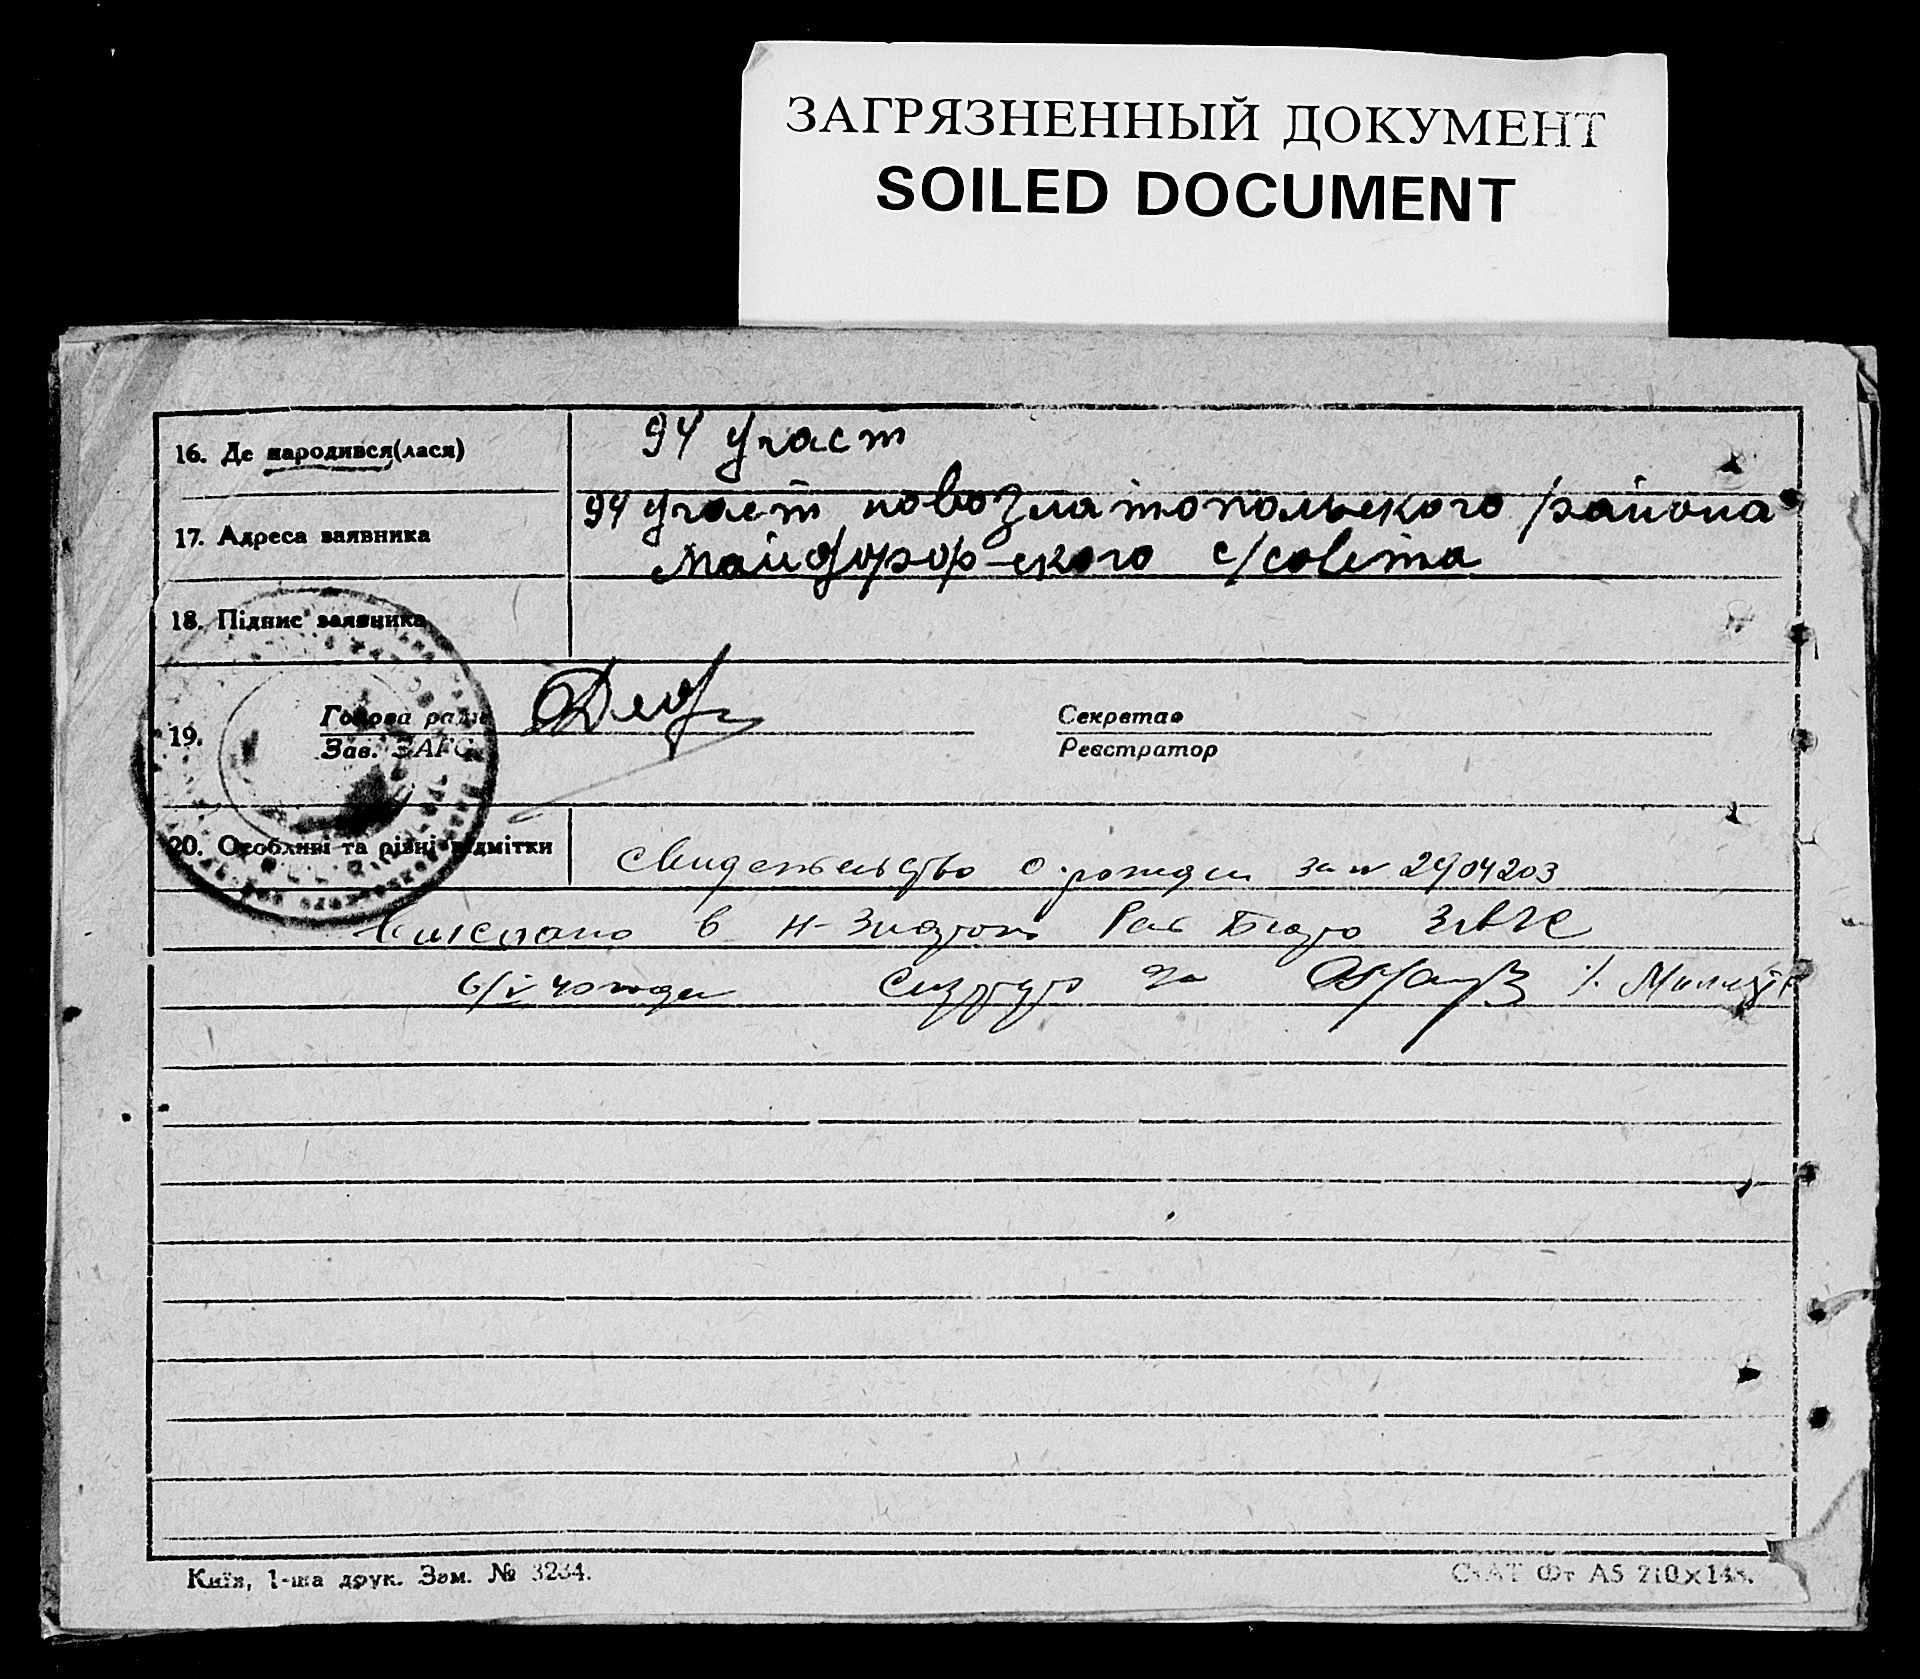 ЗАГРЯЗНЕННЫЙ ДОКУМЕНТ
SOILED DOCUMENT
16. Де народився(лася)
94 участ
17. Адреса заявника
94 участ новозлатопольского района
майфор-ского с/совета
18. Підпис заявника
19.
Голова ради
Зав. ЗАГС
Секретар
Реєстратор
20. Особливі та різні відмітки
Свидетельство о рождеи за № 2904203
в Н-Златоп Рай Бюро ЗАГС
6/V 40 года
Київ, 1-ша друк. Зам. № 3234.
Фт А5 210×148.